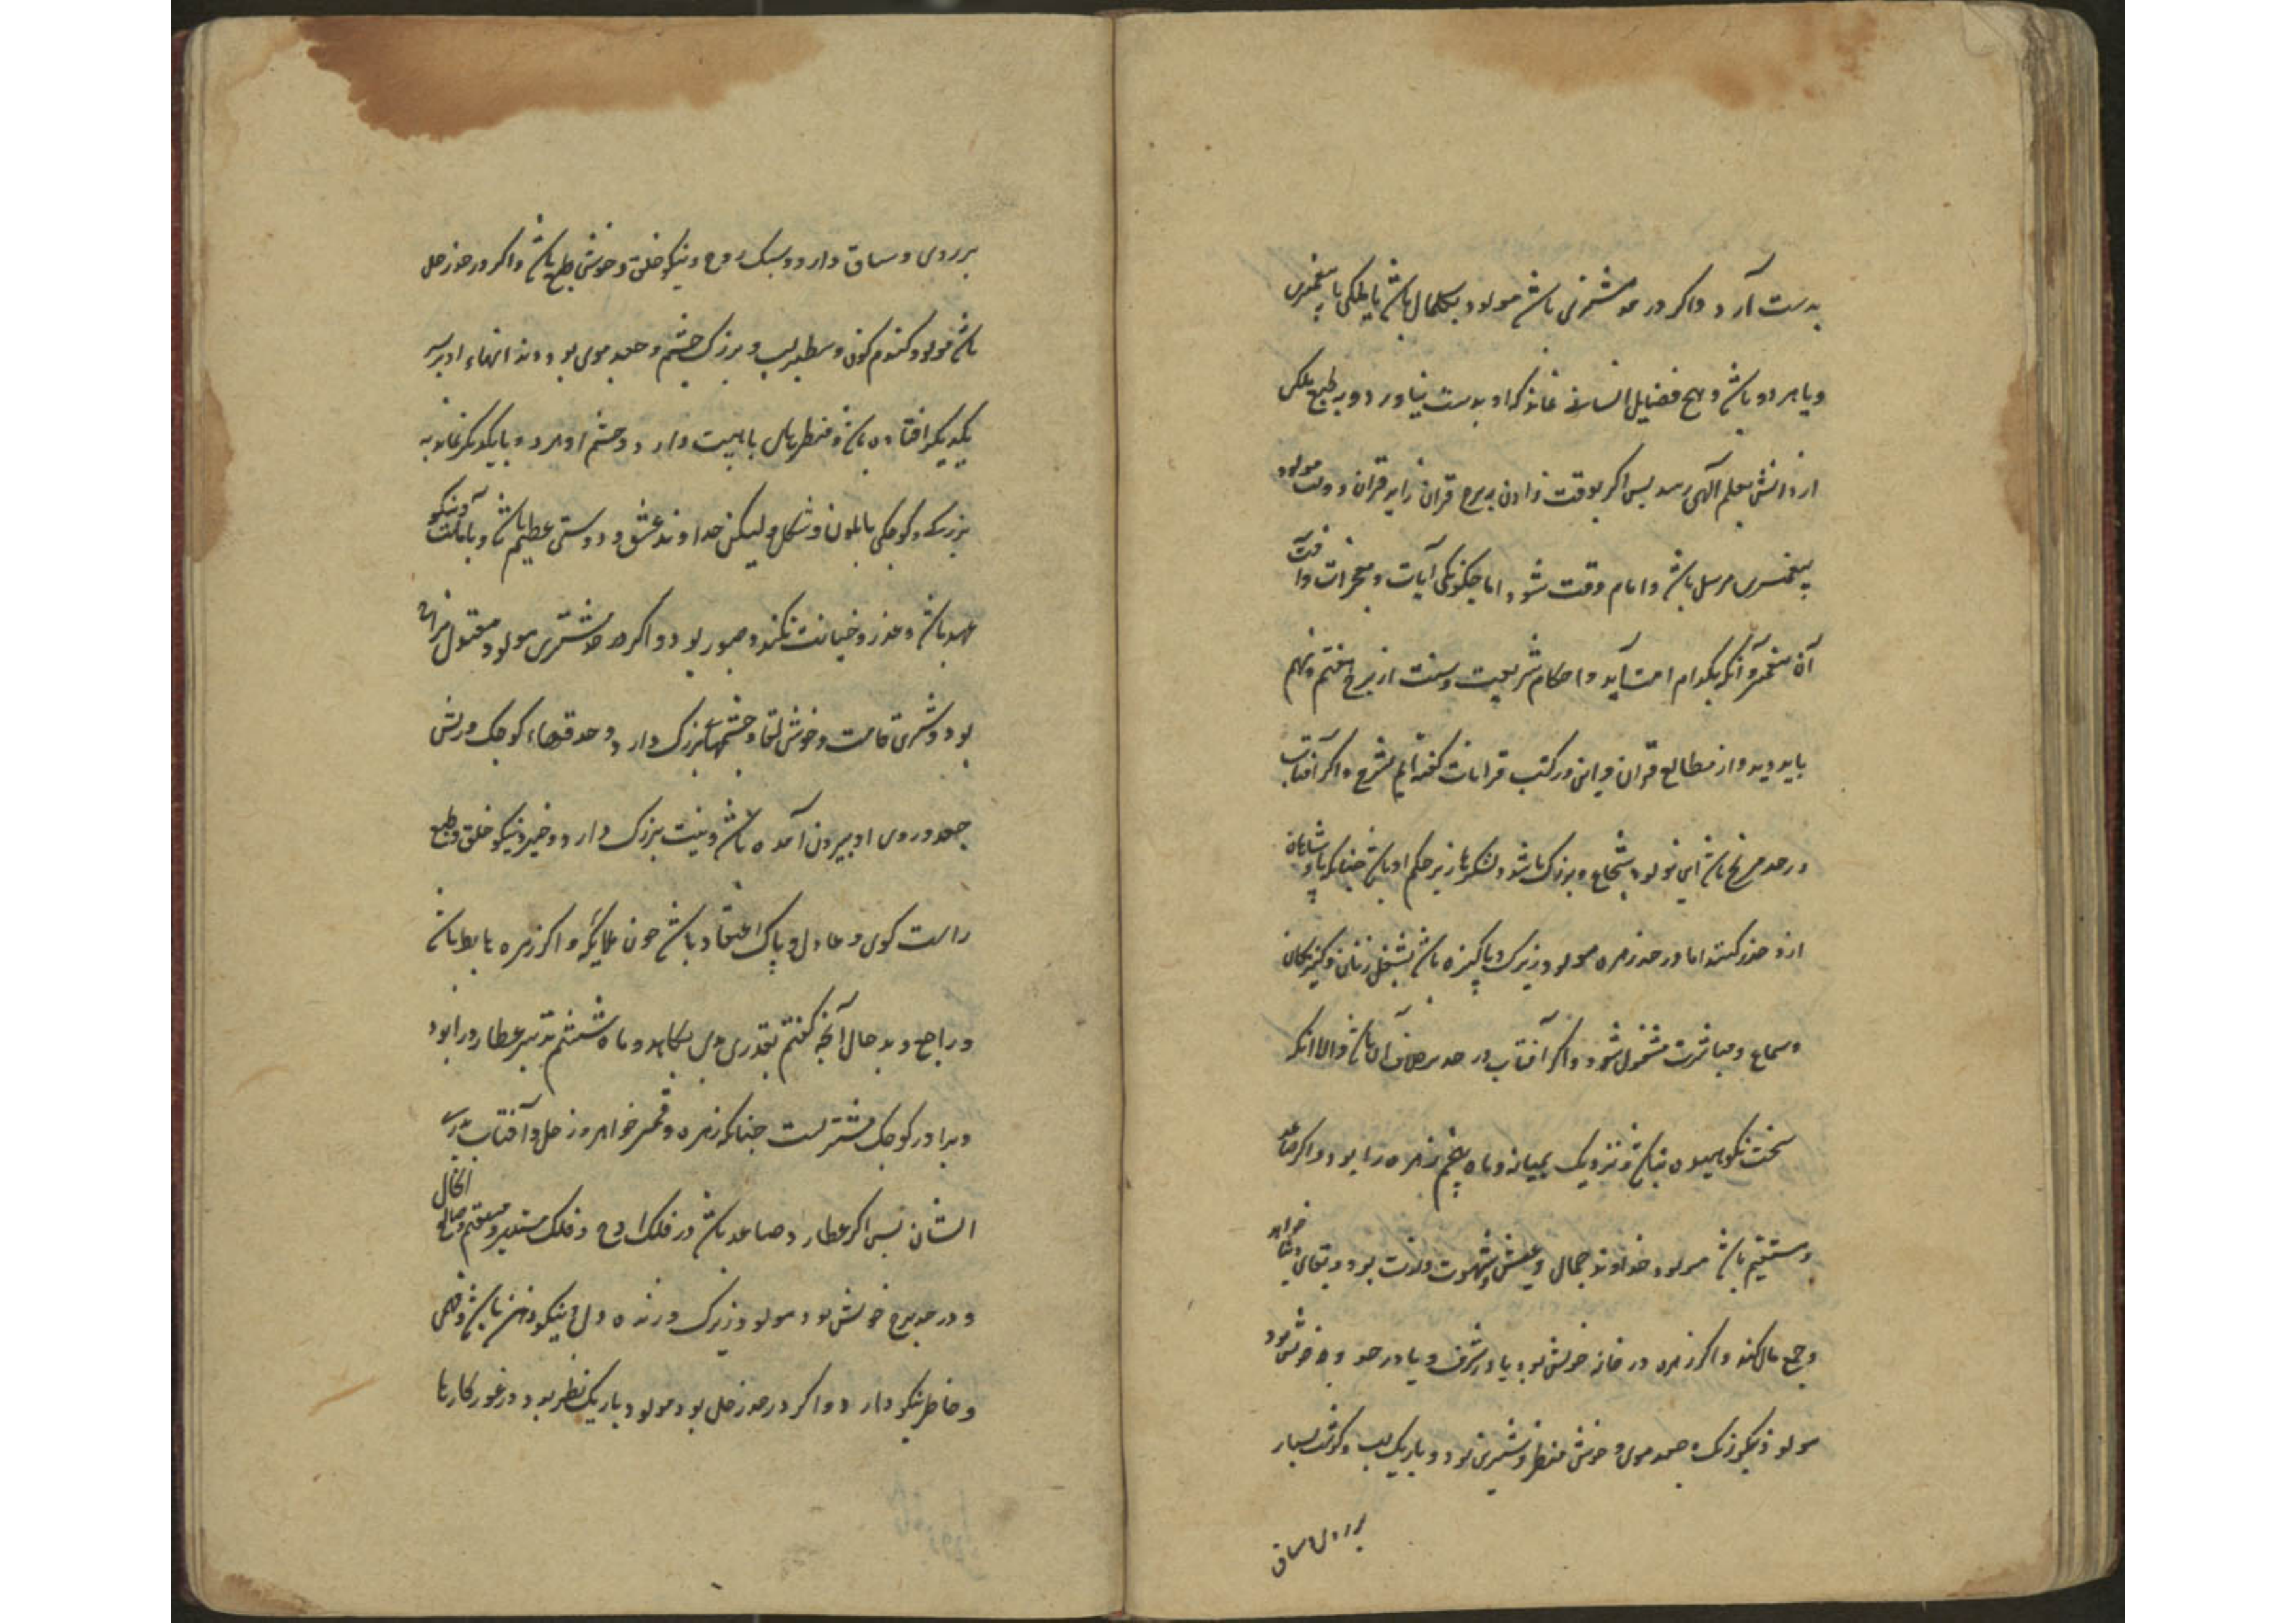 بدست آرد واکر در حد مشتری باشد مولود بکمال باشد یا ملکی یا پیغمبری
ویا هر دو باشد و هیچ فضایل انسانی نماند که او بدست نیاورد و بر طبع ملکی
از دانش بعلم آلهی رسد پس اکر بوقت زادن برج قران زاید قران دولت مولود
پیغمبری مرسل باشد و امام وقت شود اما چکونکی آیات و معجزات و آفت
آن پیغمبر و آنکه بکدام امت آید و احکام شریعت و سنت از برج هفتم و نهم
باید دید و از مطالع قران و این در کتب قرانات کفته ایم بشرح واکر آفتاب
در حد مریخ باشد این مولود شجاع و بزرک باشد و لشکرها زیر حکم او باشد چنانکه پادشاهان
ازو حذر کنند اما در حد زهره مولود زیرک و پاکیزه باشد بشغل زنان و کنیزکان
و سماع و مباشرت مشغول شود واکر آفتاب در حد برخلاف آن باشد والا آنکه
سخت نکوهیده نباشد و نزدیک بمیانه و ماه پنجم زهره را بود و اکر صاعد
و مستقیم باشد مولود خداوند جمال و عیش و شهوت و لذت بود و بقای خواهد
و جمع مال کند واکر زهره در خانه خویش بود یا در شرف و یا در حد وجه خویش بود
مولود نیکو رنک و جعد موی و خوش منظر و شیرین بود و باریک لب و کوشت بسیار
بر روی و ساق
بر روی و ساق دارد و سبک روح و نیکو خلق و خوش طبع باشد واکر در حد زحل
باشد مولود کندم کون و سطبر لب و بزرک چشم و جعد موی بود و دندانهاء او بر
یکدیکر افتاده باشد و منظر باهیبت دارد و چشم او هر دو با یکدیکر نماند به
بزرکی و کوچکی یا بلون و شکل ولیکن خداوند عشق و دوستی عظیم باشد و با امانت و نیکو
عهد باشد و غدر و خیانت نکند و صبور بود و اکر در حد مشتری مولود مقبول
بود و شیرین قامت و خوش لقا و چشمهاء بزرک دارد و حدقهاء کوچک و ریش
جعد و روی او بیرون آمده باشد و بینی بزرک دارد و خیر و نیکو خلق و بطبع
راست کوی و عادل و پاک اعتقاد باشد چون ملایکه واکر زهره هابط باشد
و راجع و بد حال آنچه کفتم بقدری می بکاهد و ماه ششم تدبیر عطارد را بود
و برادر کوچک مشتریست چنانکه زهره و قمر خواهر و زحل و آفتاب پدر
ایشان پس اکر عطارد صاعد باشد در فلک اوج و فلک مستدیر و مستقیم و صالح الحال
و در حد برج خویش بود مولود زیرک و زنده دل و نیکو ذهن باشد و فهمی
و خاطر نیکو دارد واکر در حد زحل بود مولود باریک نظر بود و در غور کارها